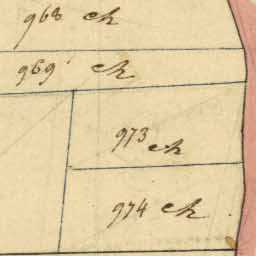 968 ch
969 ch
973 ch
974 ch